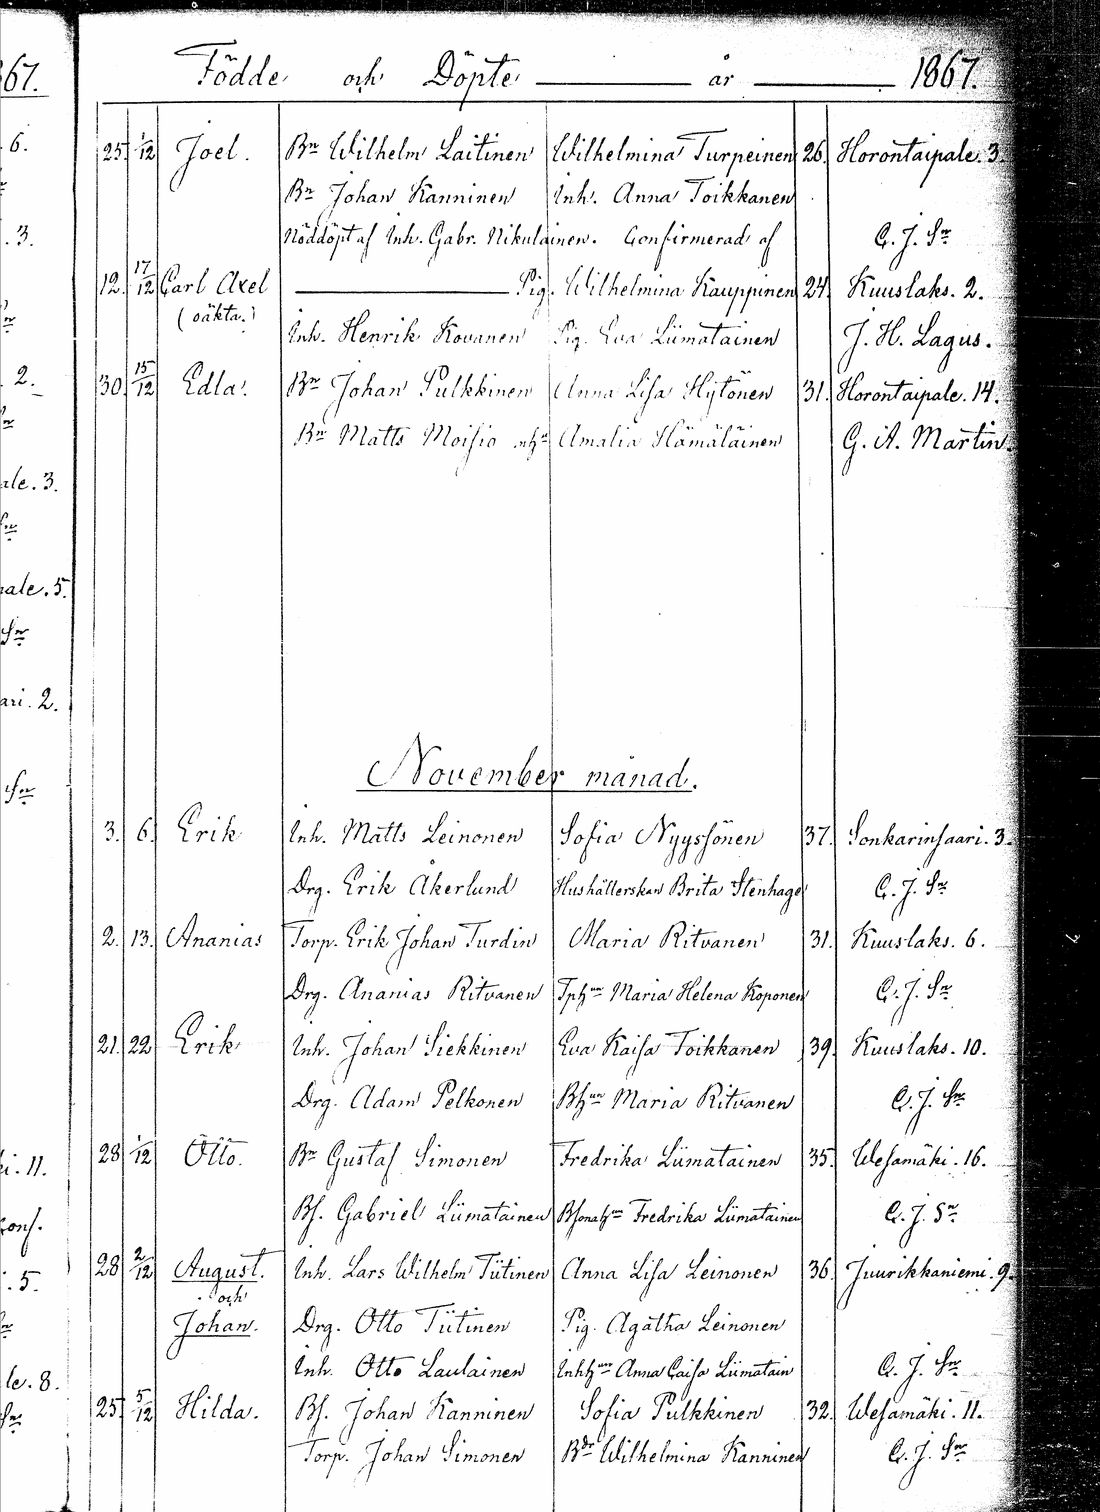 67.
Födde och Döpte år 1867.
6.
25. 1/12 Joel. Bn Wilhelm Laitinen Wilhelmina Turpeinen 26. Horontaipale. 3.
Bn Johan Kanninen Inh. Anna Toikkanen
3. Nöddöpt af Inh. Gabr. Nikulainen. Confirmerad af C. J. Sn
12. 17/12 Carl Axel Pig. Wilhelmina Kauppinen 24. Kuuslaks. 2.
(oäkta.)
Inh. Henrik Kovanen Pig. Eva Liimatainen J. H. Lagus.
2. 30. 15/12 Edla. Bn Johan Pulkkinen Anna Lisa Hytönen 31. Horontaipale. 14.
Bn Matts Moisio Amalia Hämäläinen G. A. Martin.
ale. 3.
ale. 5.
ari. 2.
November månad.
3. 6. Erik Inh. Matts Leinonen Sofia Nyyssönen 37. Sonkarinsaari. 3.
Drg. Erik Åkerlund Hushållerskan Brita Stenhage C. J. Sn
2. 13. Ananias Torp. Erik Johan Turdin Maria Ritvanen 31. Kuuslaks. 6.
Drg. Ananias Ritvanen Tphun Maria Helena Koponen C. J. Sn
21. 22 Erik Inh. Johan Siekkinen Eva Kaisa Toikkanen 39. Kuuslaks. 10.
Drg. Adam Pelkonen Bhun Maria Ritvanen C. J. Sn
i. 11. 28 1/12 Otto. Bn Gustaf Simonen Fredrika Liimatainen 35. Wesamäki. 16.
Conf. Bs. Gabriel Liimatainen Bsonahun Fredrika Liimatainen C. J. Sn
. 5. 28 2/12 August. Inh. Lars Wilhelm Tiitinen Anna Lisa Leinonen 36. Juurikkaniemi. 9.
och
Johan. Drg. Otto Tiitinen Pig. Agatha Leinonen
le. 8. Inh. Otto Laulainen Inhhun Anna Caisa Liimatain C. J. Sn
25 5/12 Hilda. Bs. Johan Kanninen Sofia Pulkkinen 32. Wesamäki. 11.
Torp. Johan Simonen Bdr Wilhelmina Kanninen C. J. Sn